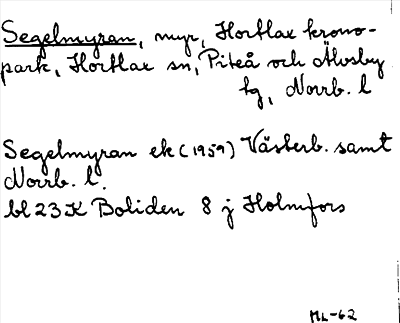 Segelmyran, myr, Hortlax krono-
park, Hortlax sn, Piteå och Älvsby
tg, Norrb. l
Segelmyran ek (1959) Västerb. samt
Norrb. l.
bl 23 K Boliden 8 j Holmfors
ML-62